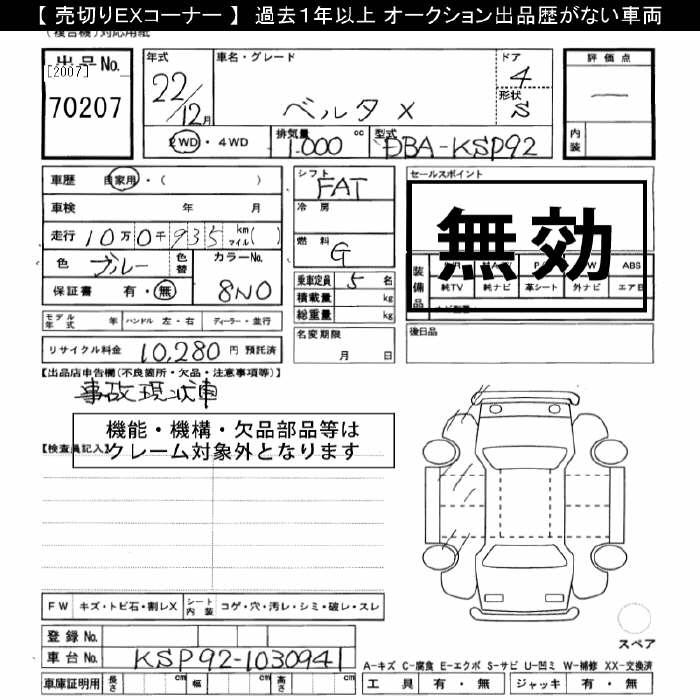 【 売切りEXコーナー 】 過去１年以上 オークション出品歴がない車両
(複合機)対応用紙
出品No.
[2007]
70207
年式
22/12月
車名・グレード
ベルタ X
ドア
4
形状
S
評価点
—
内装
2WD・4WD
排気量 1.000 cc
型式 DBA-KSP92
車歴 自家用・( )
車検 年 月
走行 10万0千935 km マイル( )
色 ブルー 色替 カラーNo. 8N0
保証書 有・無
シフト
FAT
冷房
燃料
G
乗車定員 5 名
積載量 kg
総重量 kg
名変期限
月 日
セールスポイント
無効
装備品
ABS
純TV 純ナビ 革シート 外ナビ エアB
後日品
モデル年式 年 ハンドル 左・右 ディーラー・並行
リサイクル料金 10,280 円 預託済
【出品店申告欄(不良箇所・欠品・注意事項等)】
事故現状車
機能・機構・欠品部品等は
クレーム対象外となります
【検査員記入】
FW キズ・トビ石・割レX シート内装 コゲ・穴・汚レ・シミ・破レ・スレ
登録No.
車台No. KSP92-1030941
車庫証明用 長さ cm 幅 cm 高さ cm
スペア
A-キズ C-腐食 E-エクボ S-サビ U-凹ミ W-補修 XX-交換済
工具 有・無 ジャッキ 有・無